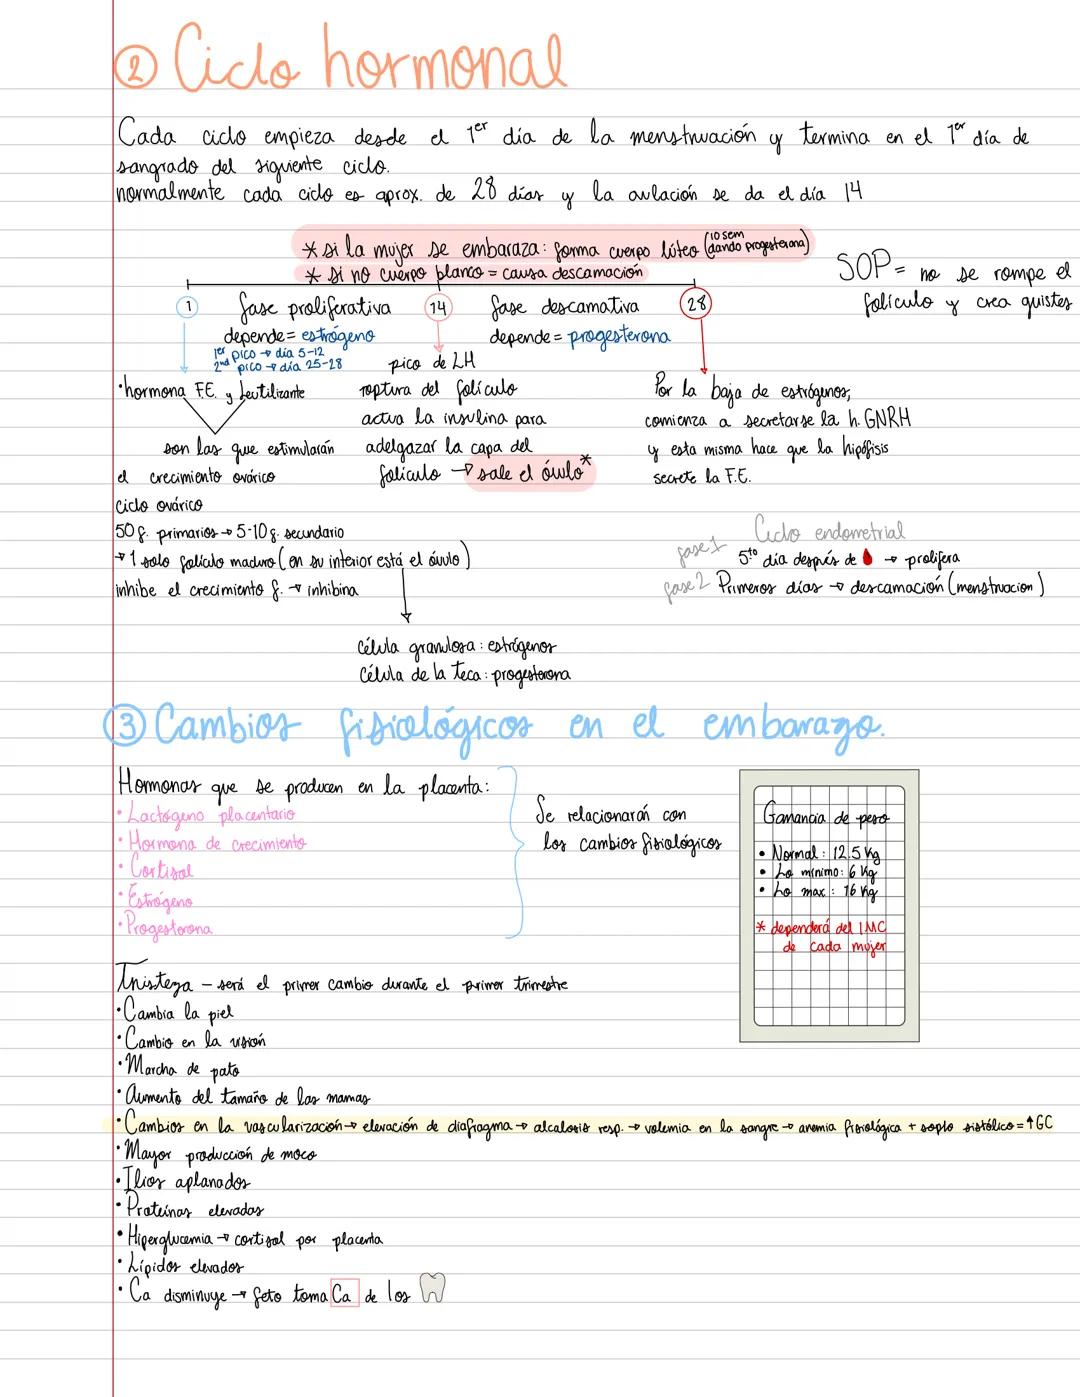 ② Ciclo hormonal
Cada ciclo empieza desde el 1er día de la menstruación y termina en el 1er día de
sangrado del siguiente ciclo.
normalmente cada ciclo es aprox. de 28 días y la ovulación se da el día 14
* si la mujer se embaraza: forma cuerpo lúteo (10 sem dando progesterona)
* si no cuerpo blanco = causa descamación
SOP = no se rompe el
folículo y crea quistes
1 fase proliferativa 14 fase descamativa 28
depende = estrógeno
depende = progesterona
1er pico → día 5-12
2nd pico → día 25-28
• hormona F.E. y Leutilizante
son las que estimularán
el crecimiento ovárico
pico de LH
ruptura del folículo
activa la insulina para
adelgazar la capa del
folículo → sale el óvulo*
Por la baja de estrógenos,
comienza a secretarse la h. GNRH
y esta misma hace que la hipófisis
secrete la F.E.
ciclo ovárico
50 f. primarios → 5-10 f. secundario
→ 1 solo folículo maduro (en su interior está el óvulo)
inhibe el crecimiento f. → inhibina
Célula granulosa: estrógenos
Célula de la teca: progesterona
Ciclo endometrial
fase 1 5to día después de → prolifera
fase 2 Primeros días → descamación (menstruacion)
③ Cambios fisiológicos en el embarazo.
Hormonas que se producen en la placenta:
• Lactógeno placentario
• Hormona de crecimiento
• Cortisol
• Estrógeno
• Progesterona
Se relacionarán con
los cambios fisiológicos
Ganancia de peso
• Normal: 12.5 Kg
• Lo mínimo: 6 Kg
• Lo max: 16 Kg
* dependerá del IMC
de cada mujer
Tristeza – será el primer cambio durante el primer trimestre
• Cambia la piel
• Cambio en la visión
• Marcha de pato
• Aumento del tamaño de las mamas
• Cambios en la vascularización → elevación de diafragma → alcalosis resp. → volemia en la sangre → anemia fisiológica + soplo sistólico = ↑GC
• Mayor producción de moco
• Ilios aplanados
• Proteínas elevadas
• Hiperglucemia → cortisol por placenta
• Lípidos elevados
• Ca disminuye → feto toma Ca de los